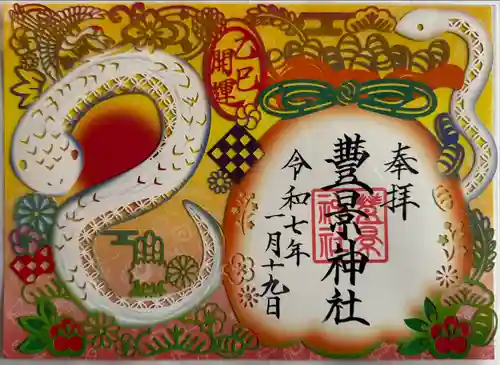 奉拝
豊景神社
令和七年
一月十九日
乙巳
開運
豊景
神社